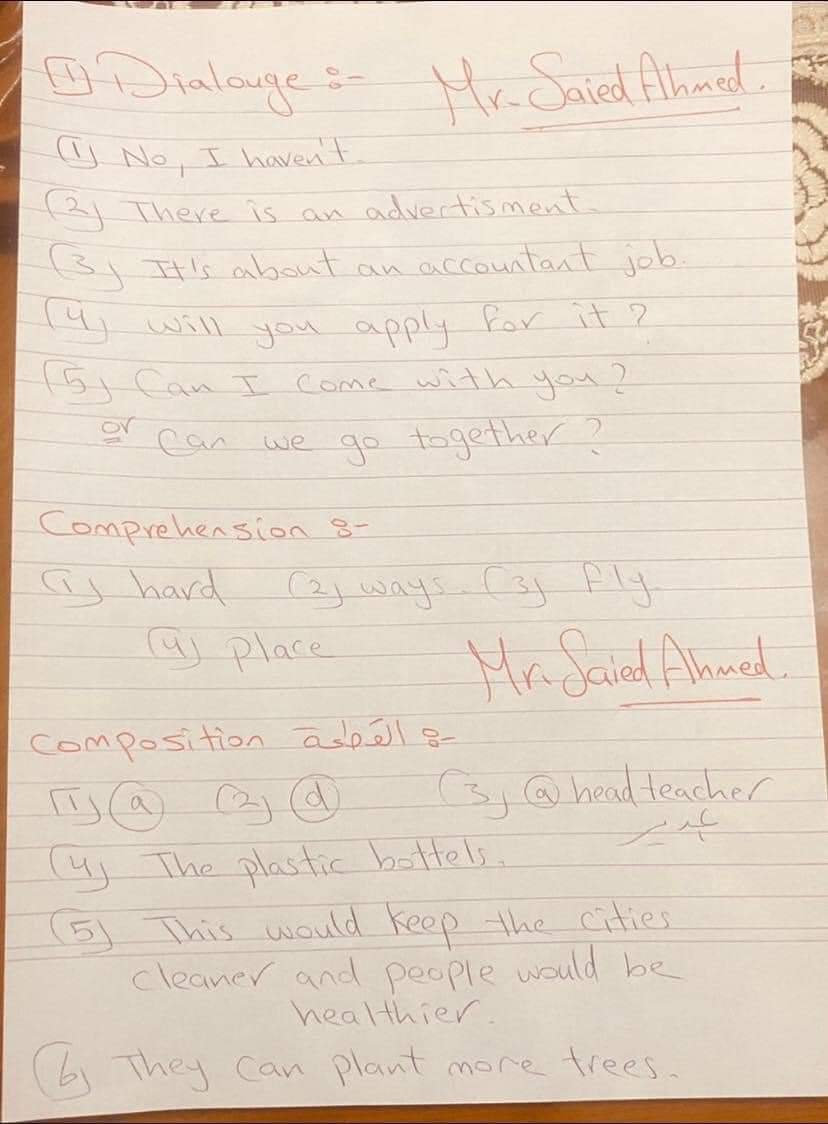 [1] Dialouge :- Mr. Saied Ahmed.
(1) No, I haven't.
(2) There is an advertisment.
(3) It's about an accountant job.
(4) Will you apply for it?
(5) Can I come with you?
or Can we go together?
Comprehension :-
(1) hard (2) ways. (3) fly.
(4) place
Mr. Saied Ahmed.
Composition :-
(1) (a) (2) (d) (3) (a) headteacher
(4) The plastic bottels.
(5) This would keep the cities
cleaner and people would be
healthier.
(6) They can plant more trees.